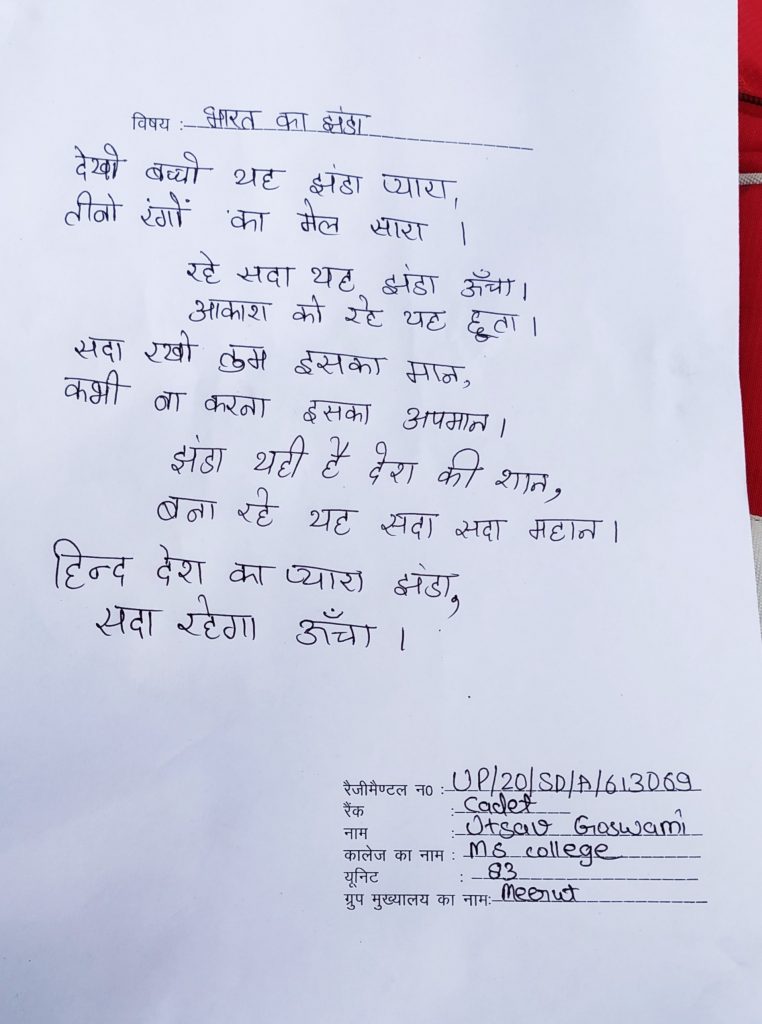 विषय :- भारत का झंडा
देखो बच्चो यह झंडा प्यारा,
तीनो रंगों का मेल सारा ।
रहे सदा यह झंडा ऊँचा।
आकाश को रहे यह छूता।
सदा रखो तुम इसका मान,
कभी ना करना इसका अपमान।
झंडा यही है देश की शान,
बना रहे यह सदा सदा महान।
हिन्द देश का प्यारा झंडा,
सदा रहेगा ऊँचा ।
रैजीमैण्टल न0 : UP/20/SD/A/613069
रैंक : Cadet
नाम : Utsav Goswami
कालेज का नाम : MS college
यूनिट : 83
ग्रुप मुख्यालय का नामः Meerut